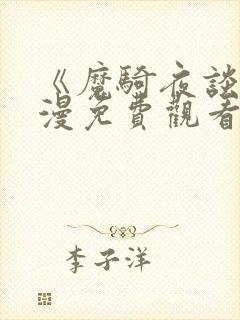 《魔騎夜談
漫免費觀看
李子洋